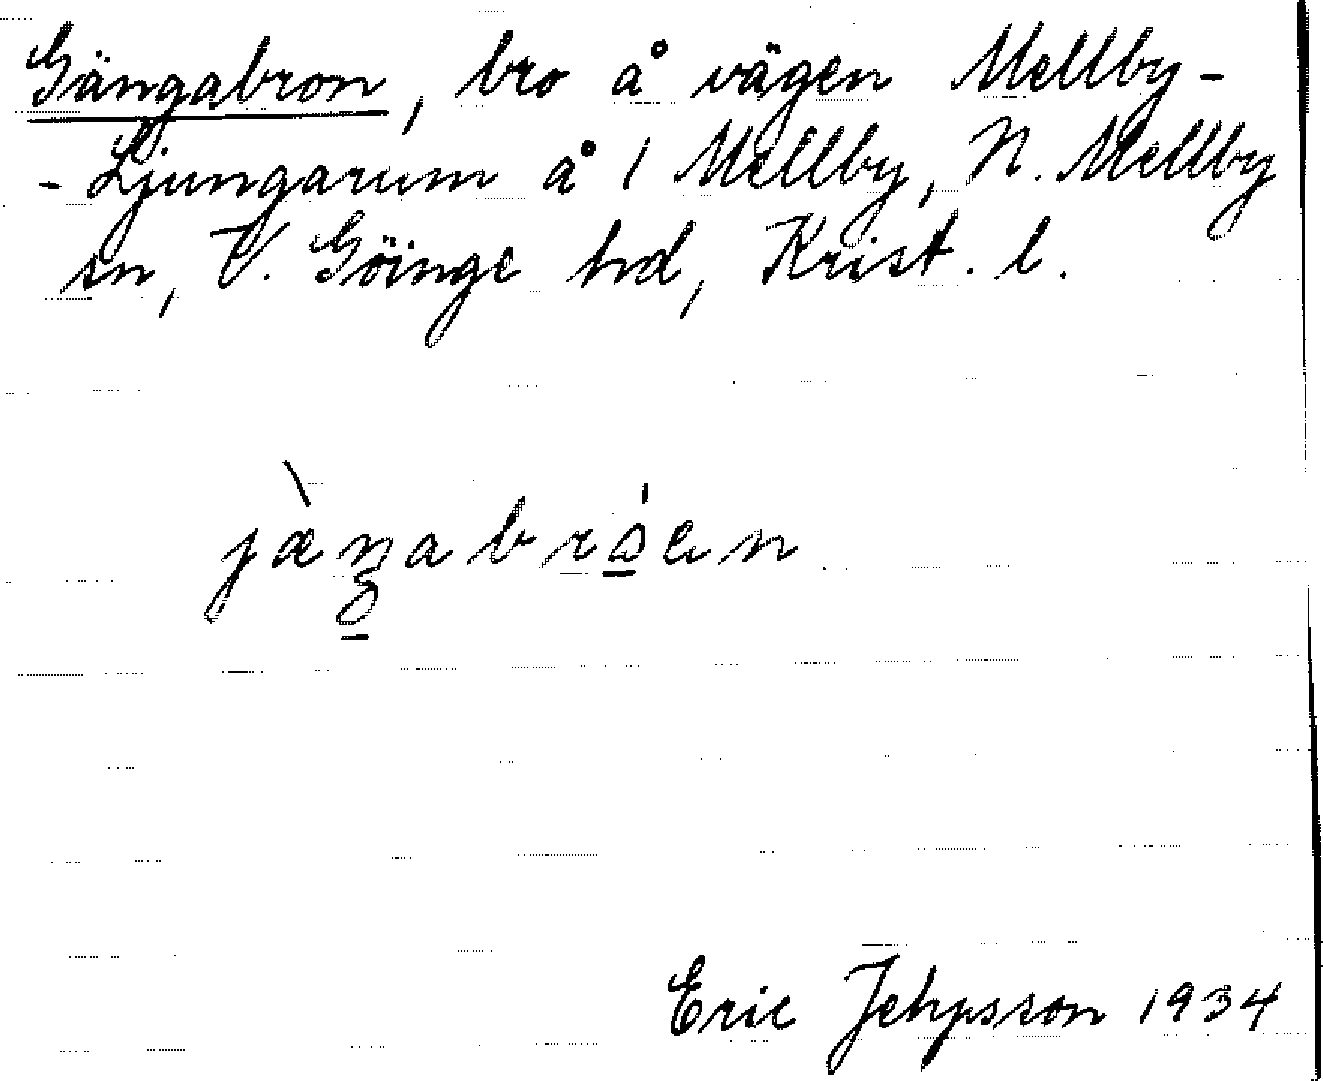 Gängabron, bro å vägen Mellby-
- Ljungarum å 1 Mellby, N. Mellby
sn, V. Göinge hd, Krist. l.
Eric Jehpsson 1934